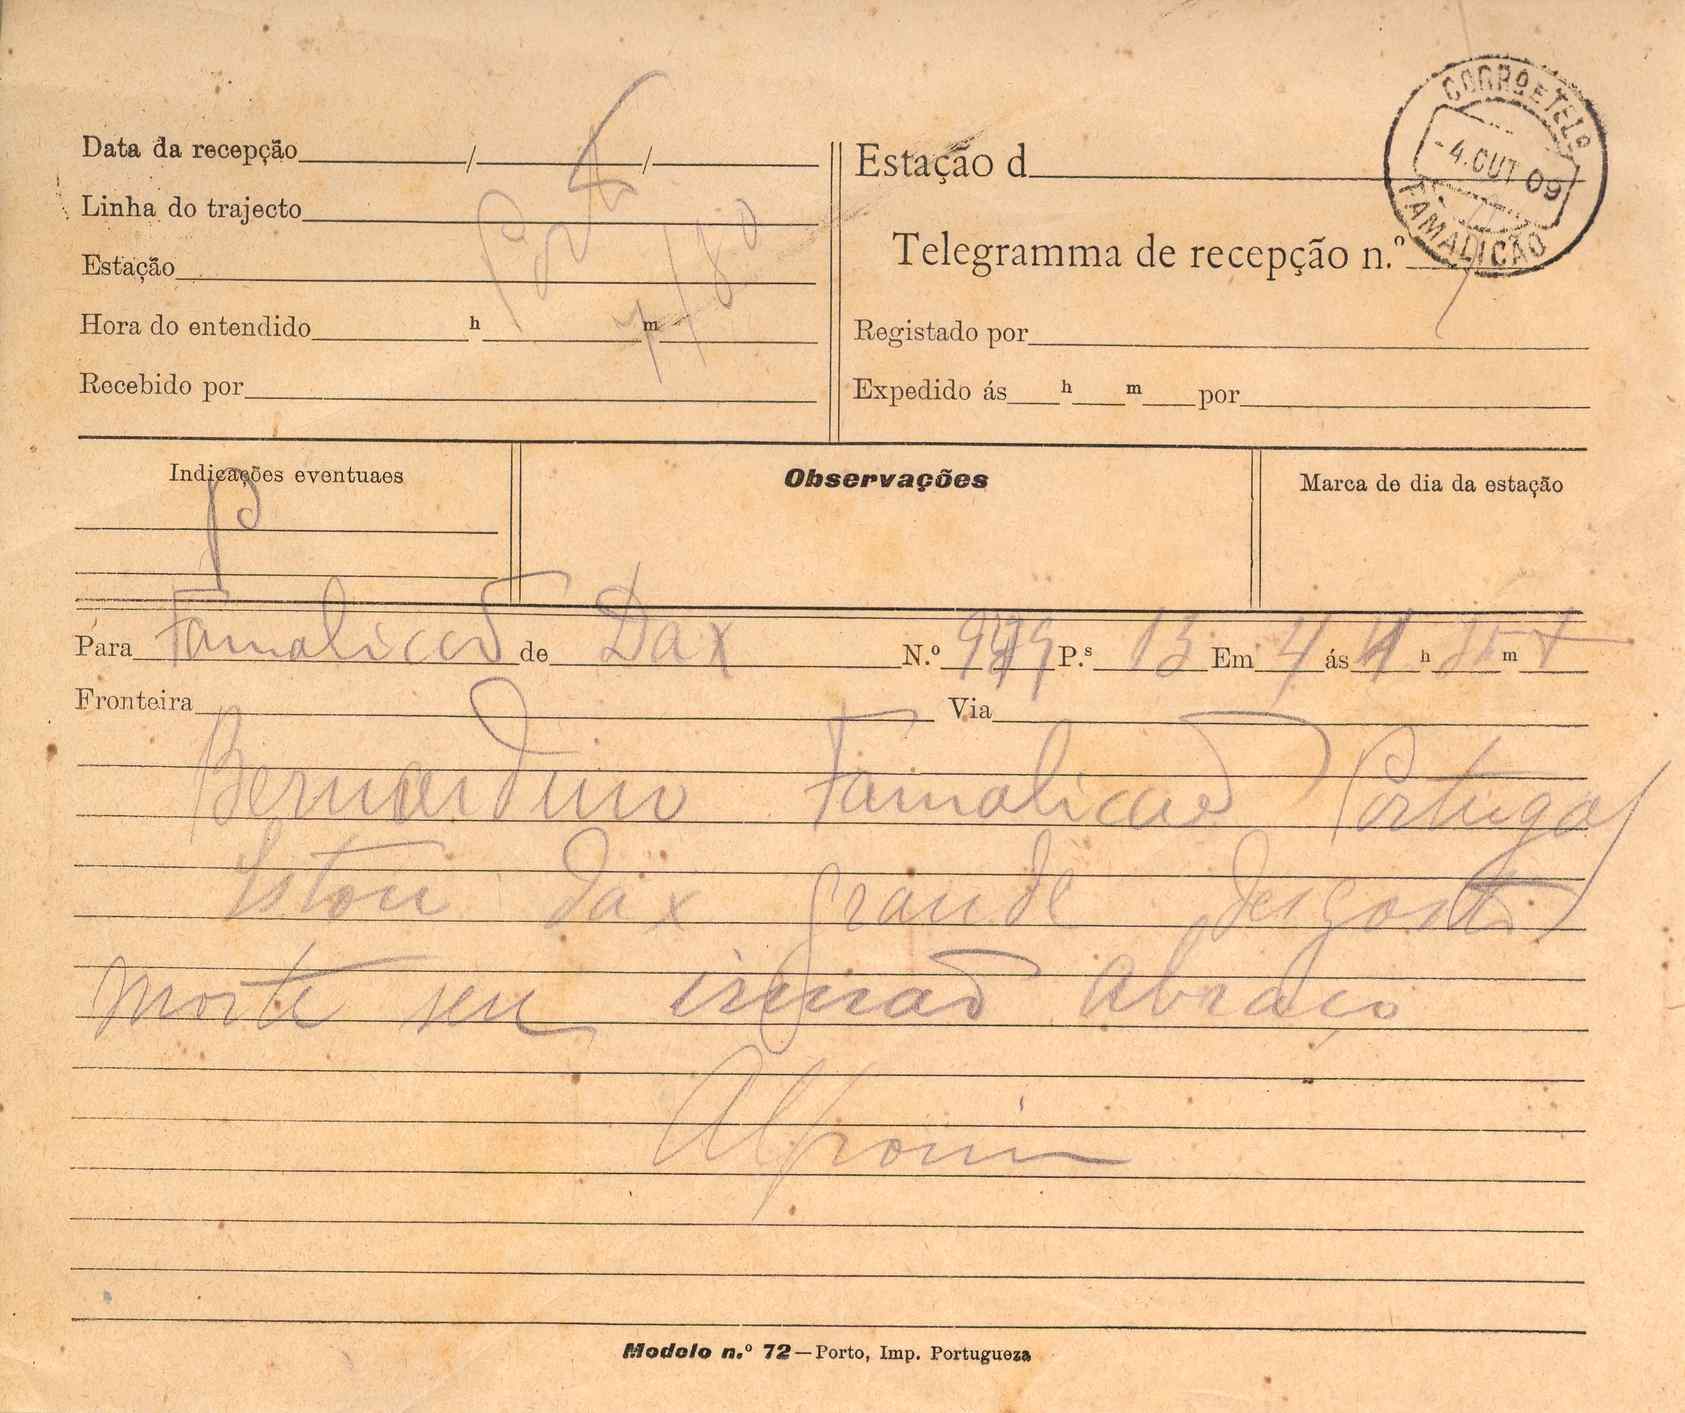 Data da recepção / /
Linha do trajecto
Estação
Hora do entendido h m
Recebido por
Estação d
CORRO E TELO
-4.OUT 09
FAMALICÃO
Telegramma de recepção n.º
Registado por
Expedido ás h m por
Indicações eventuaes
P
Observações
Marca de dia da estação
Para Famalicão de Dax N.º P.s 13 Em 4 ás h m
Fronteira Via
Bernardino Famalicão Portugal
Estou Dax grande desgosto
morte seu irmão Abraço
Modelo n.º 72—Porto, Imp. Portugueza